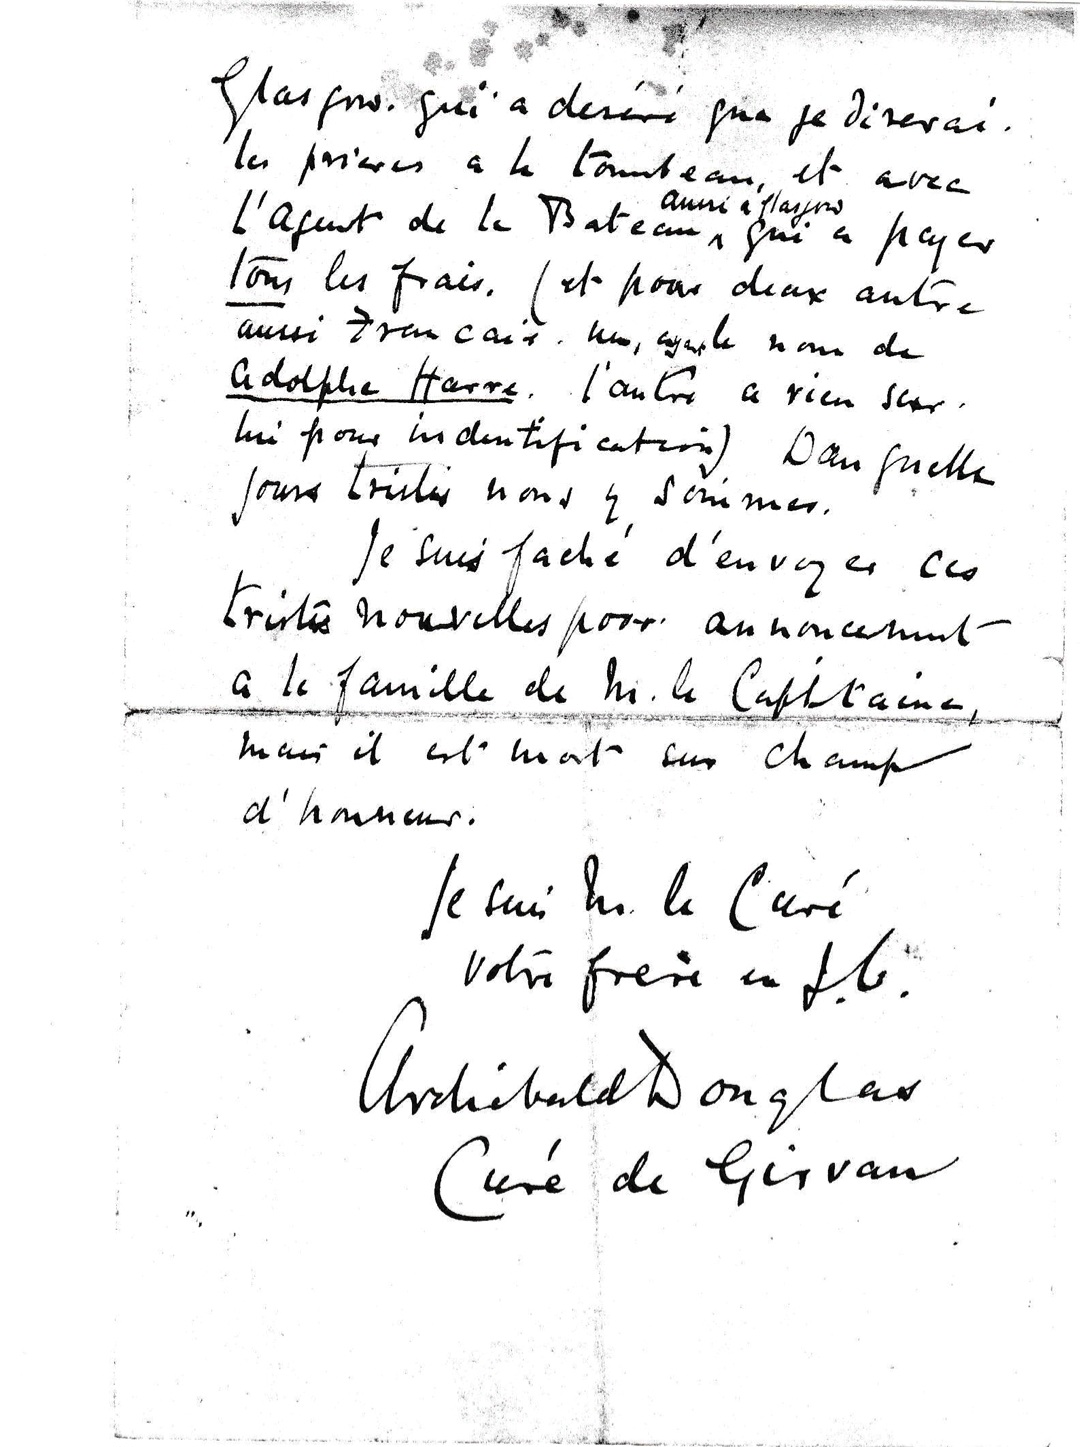 Glasgow. qui a deséré que je diserai.
les prieres a le tombeau, et avec
aussi à Glasgow
L'Agent de le Bateau, ^ qui a payer
tous les frais. (et pour deux autre
aussi Francais. un, ayant le nom de
Adolphe Harre. l'autre a rien sur.
lui pour indentification) Dan quelle
jours tristes nous y sommes.
Je suis faché d'envoyer ces
tristes nouvelles pour annoncement
a le famille de M. le Capitaine,
mais il est mort sur champ
d'honneur.
Je suis M. le Curé
votre frere en J.C.
Archibald Douglas
Curé de Girvan